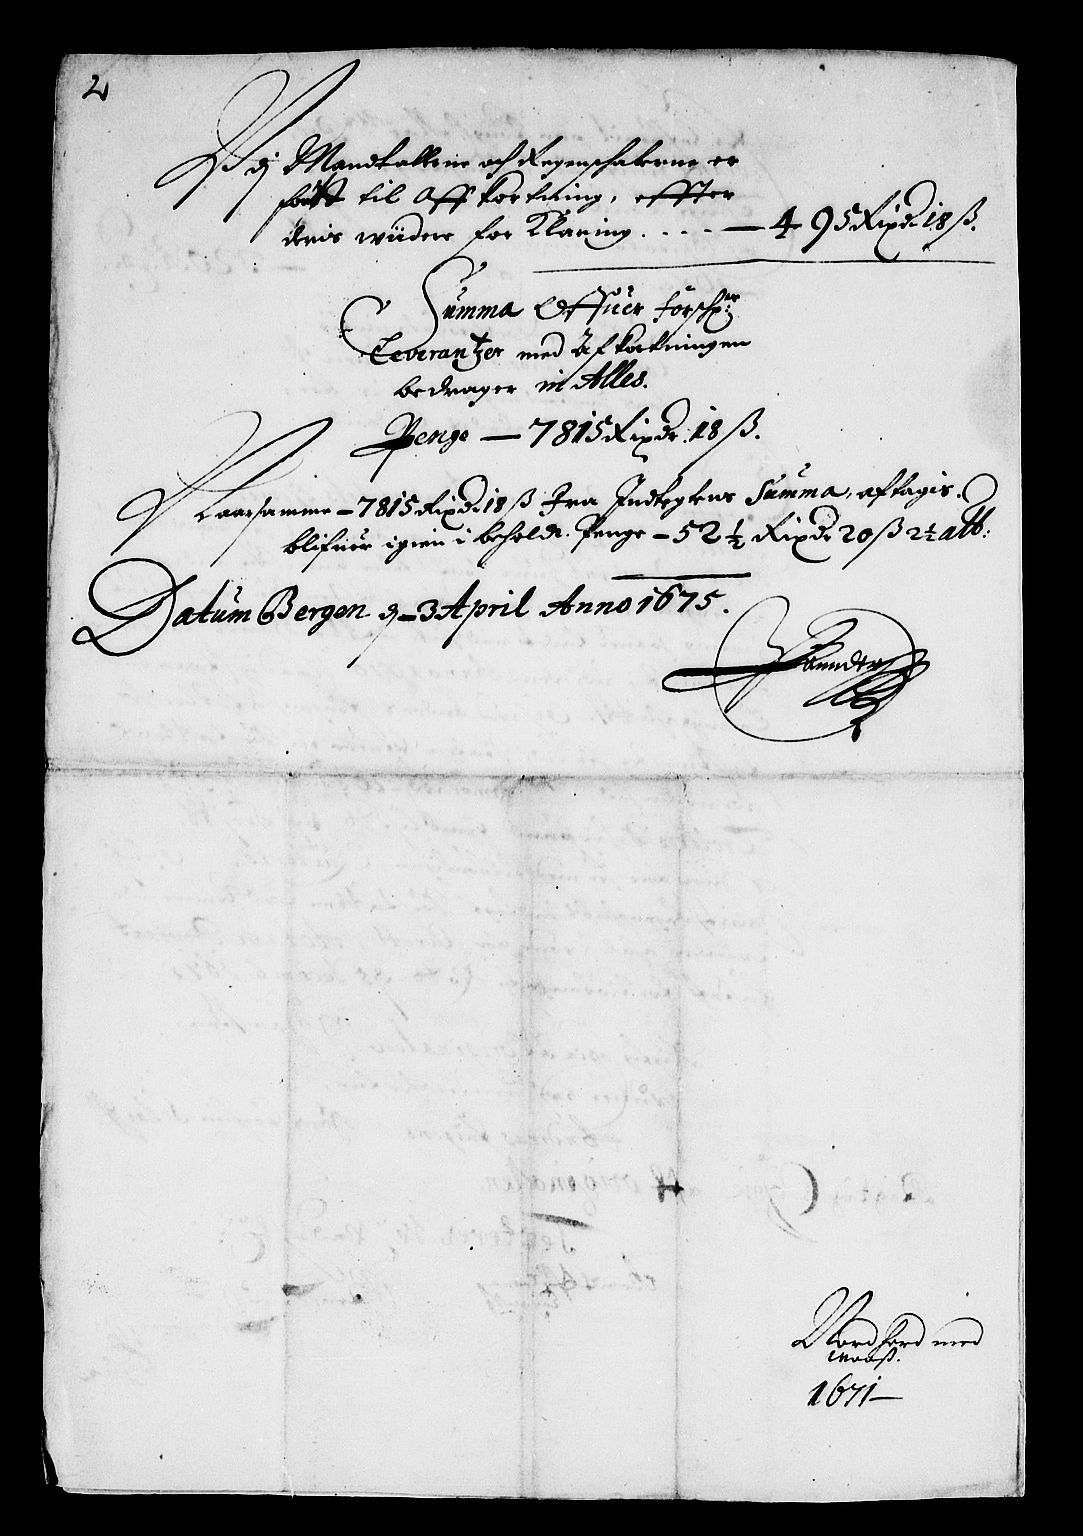 2
Udj Mandtallene och Regenschaberne er
ført til Aff kortning, effter
deris wiidere for Klaring . . . . — 495 Rixdr 18 ß.
Summa Offuer forschr:ne
Leverantzer med Afkortningen
bedrager in Alles.
Penge — 7815 Rixdr. 18 ß.
Naar samme — 7815 Rixdr 18 ß fra Indtegtens Summa, aftagis.
blifuer igien i behold. Penge — 52 ½ Rixdr 20 ß 2 ½ alb:
Datum Bergen d — 3 April Anno 1675.
Nordford med
1671 —